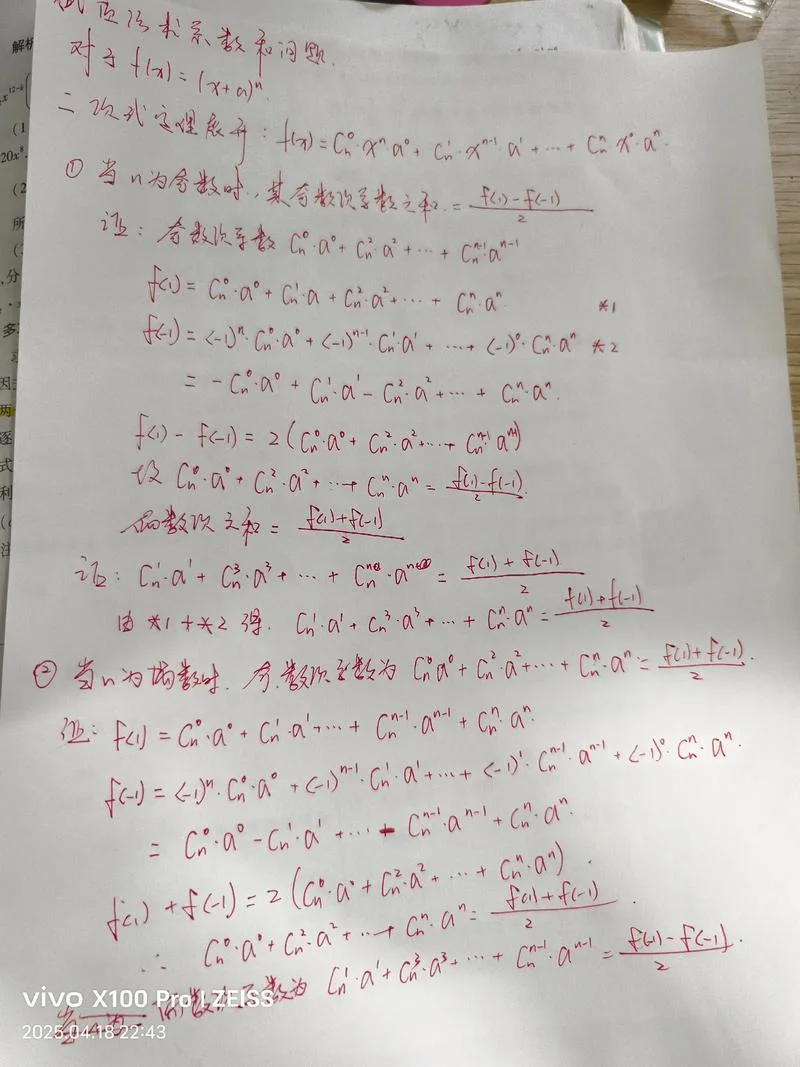 试值法求系数和问题.
对于 f(x) = (x+a)ⁿ.
二次式定理展开: f(x) = Cₙ⁰·xⁿ·a⁰ + Cₙ¹·xⁿ⁻¹·a¹ + ··· + Cₙⁿ·x⁰·aⁿ.
① 当n为奇数时, 其奇数次系数之和 = (f(1)-f(-1))/2
证: 奇数次系数 Cₙ⁰·a⁰ + Cₙ²·a² + ··· + Cₙⁿ⁻¹·aⁿ⁻¹
f(1) = Cₙ⁰·a⁰ + Cₙ¹·a + Cₙ²·a² + ··· + Cₙⁿ·aⁿ *1
f(-1) = (-1)ⁿ·Cₙ⁰·a⁰ + (-1)ⁿ⁻¹·Cₙ¹·a¹ + ··· + (-1)⁰·Cₙⁿ·aⁿ *2
= -Cₙ⁰·a⁰ + Cₙ¹·a¹ - Cₙ²·a² + ··· + Cₙⁿ·aⁿ.
f(1) - f(-1) = 2(Cₙ⁰·a⁰ + Cₙ²·a² + ··· + Cₙⁿ⁻¹·aⁿ⁻¹)
故 Cₙ⁰·a⁰ + Cₙ²·a² + ··· + Cₙⁿ·aⁿ = (f(1)-f(-1))/2.
偶数次之和 = (f(1)+f(-1))/2
证: Cₙ¹·a¹ + Cₙ³·a³ + ··· + Cₙⁿ·aⁿ = (f(1)+f(-1))/2
由 *1 + *2 得. Cₙ¹·a¹ + Cₙ³·a³ + ··· + Cₙⁿ·aⁿ = (f(1)+f(-1))/2
② 当n为偶数时. 奇数次系数为 Cₙ⁰a⁰ + Cₙ²·a² + ··· + Cₙⁿ·aⁿ = (f(1)+f(-1))/2.
证: f(1) = Cₙ⁰·a⁰ + Cₙ¹·a¹ + ··· + Cₙⁿ⁻¹·aⁿ⁻¹ + Cₙⁿ·aⁿ.
f(-1) = (-1)ⁿ·Cₙ⁰·a⁰ + (-1)ⁿ⁻¹·Cₙ¹·a¹ + ··· + (-1)¹·Cₙⁿ⁻¹·aⁿ⁻¹ + (-1)⁰·Cₙⁿ·aⁿ.
= Cₙ⁰·a⁰ - Cₙ¹·a¹ + ··· - Cₙⁿ⁻¹·aⁿ⁻¹ + Cₙⁿ·aⁿ.
f(1) + f(-1) = 2(Cₙ⁰·a⁰ + Cₙ²·a² + ··· + Cₙⁿ·aⁿ).
∴ Cₙ⁰·a⁰ + Cₙ²·a² + ··· + Cₙⁿ·aⁿ = (f(1)+f(-1))/2.
偶数次系数为 Cₙ¹·a¹ + Cₙ³·a³ + ··· + Cₙⁿ⁻¹·aⁿ⁻¹ = (f(1)-f(-1))/2.
vivo X100 Pro | ZEISS
2025.04.18 22:43